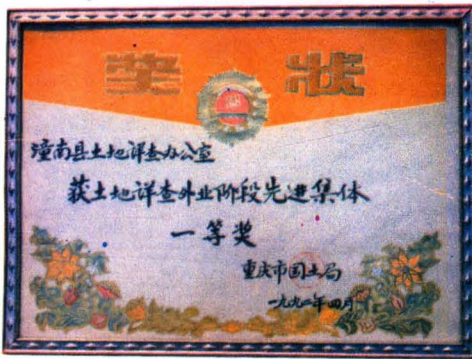 奖状
潼南县土地详查办公室
获土地详查外业阶段先进集体
一等奖
重庆市国土局
一九九二年四月